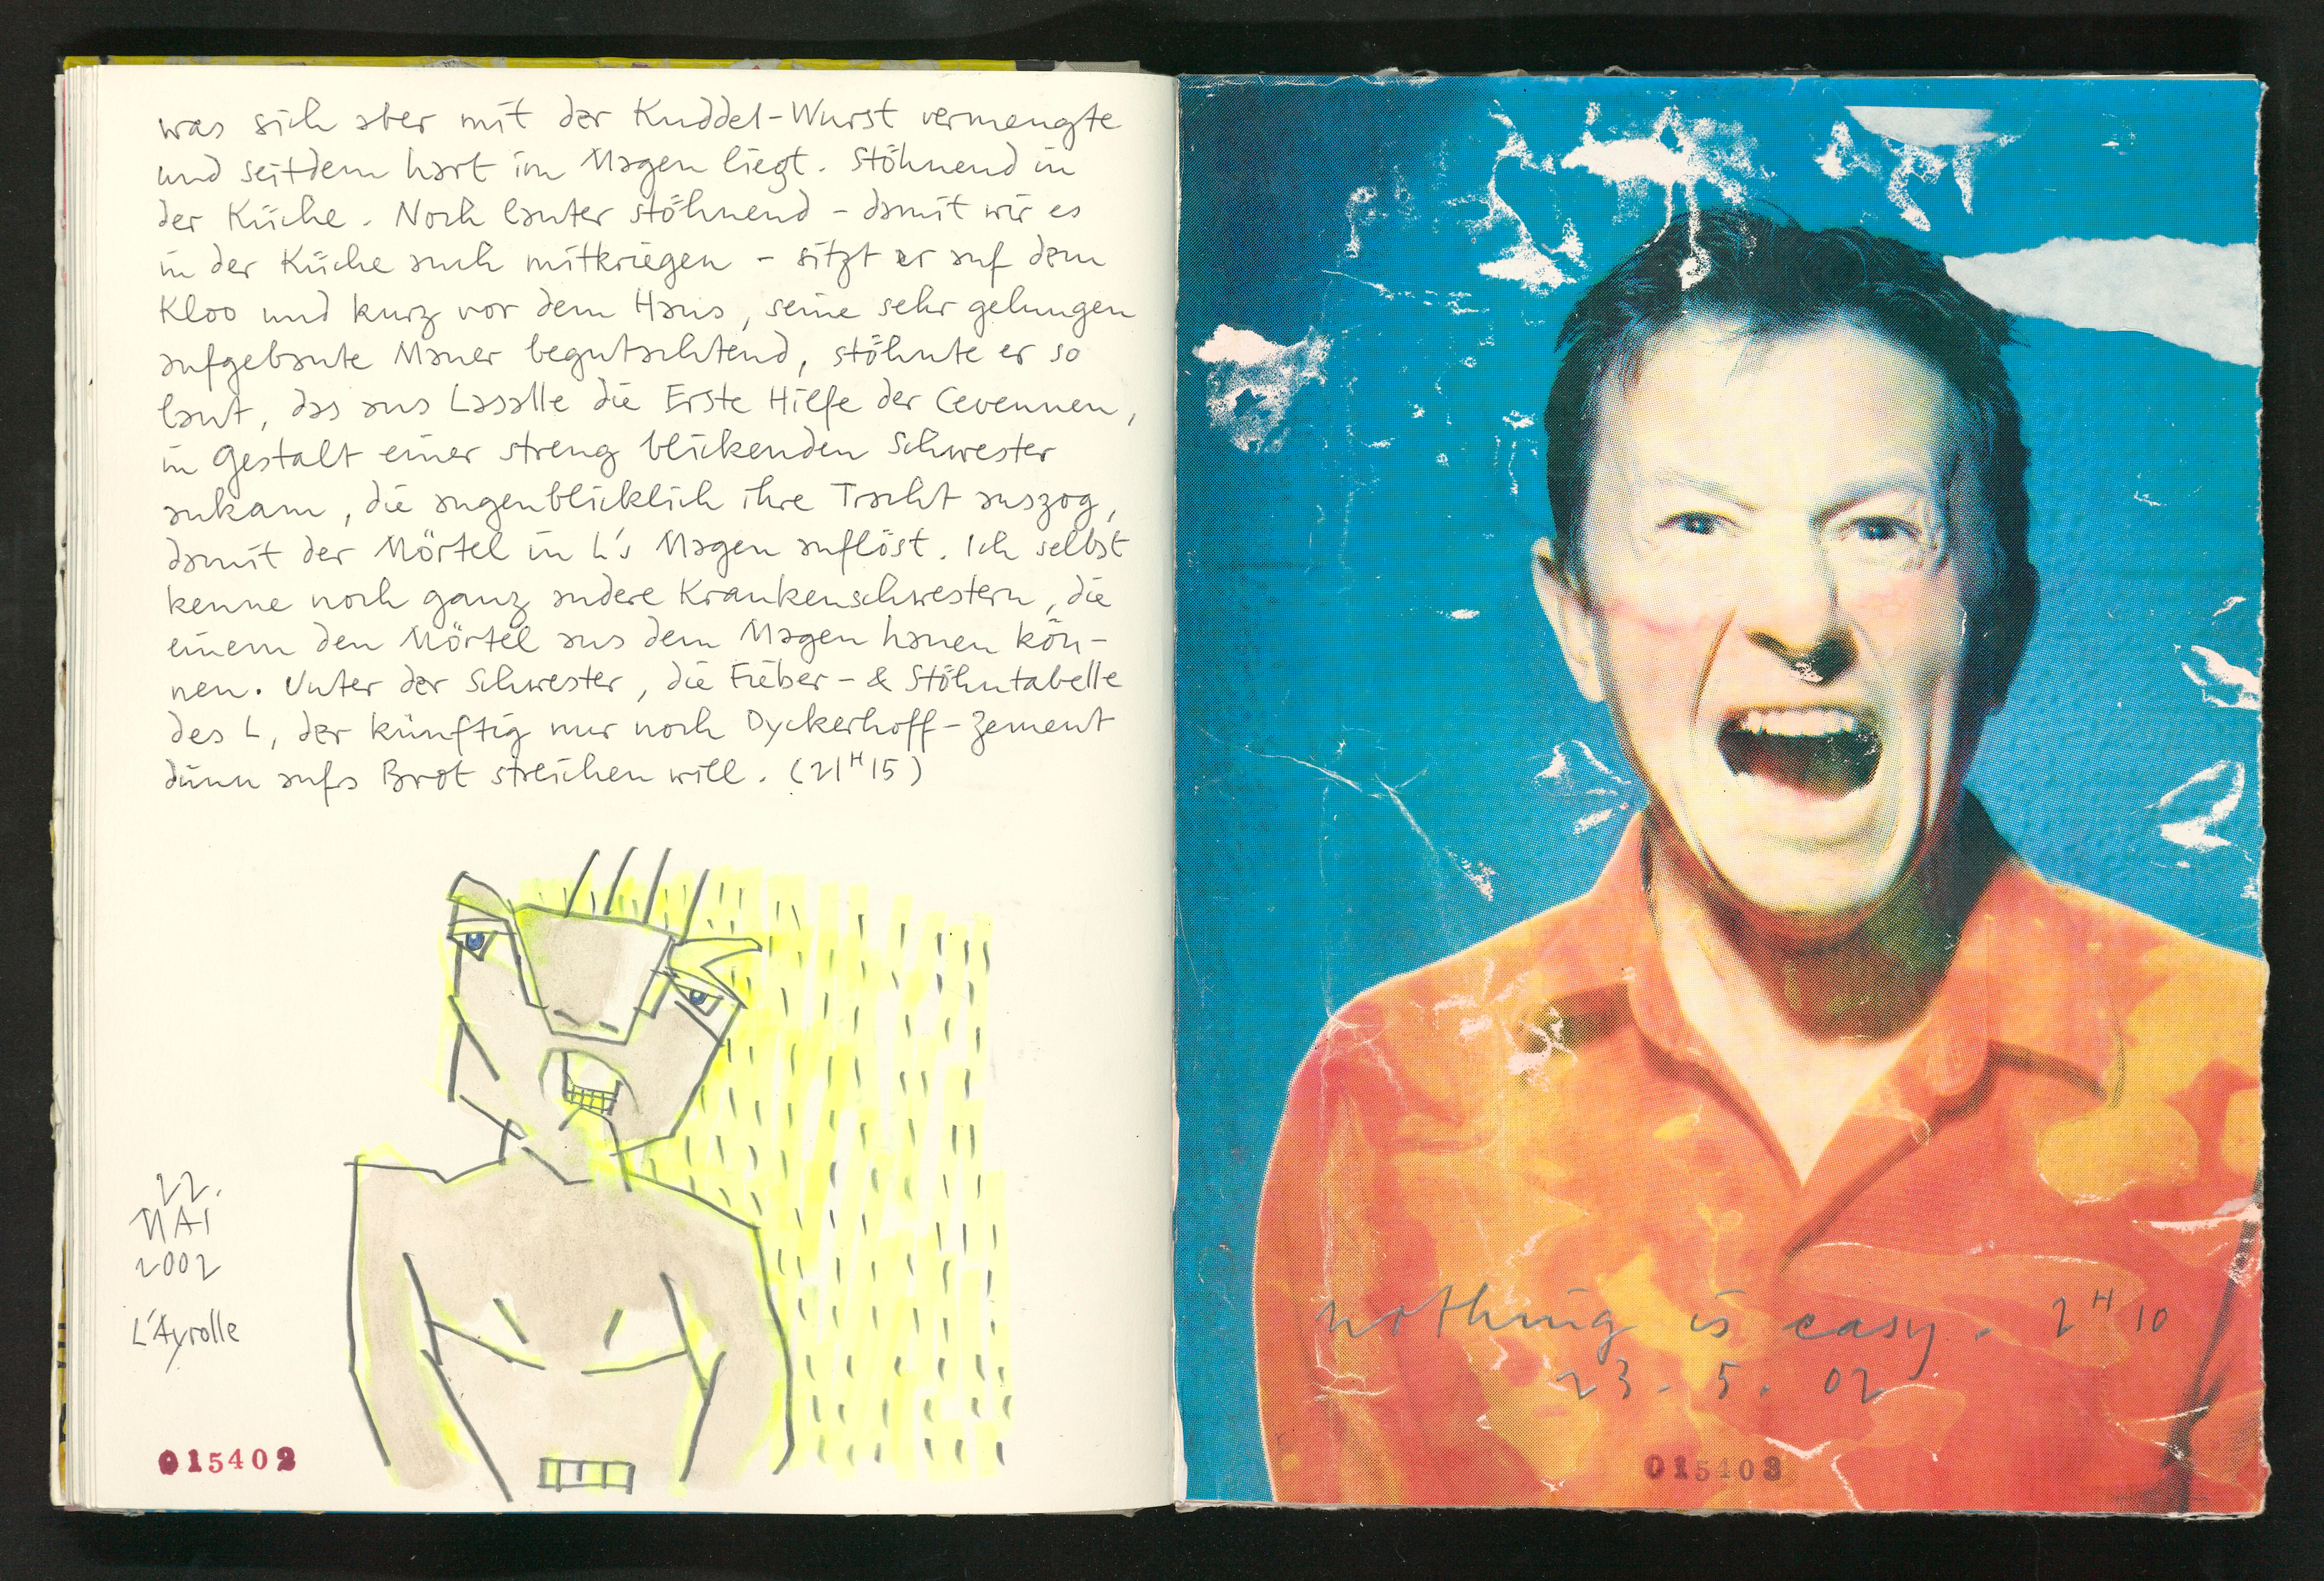 was sich aber mit der Kuddel-Wurst vermengte
und seitdem hart im Magen liegt. Stöhnend in
der Küche. Noch lauter stöhnend – damit wir es
in der Küche auch mitkriegen – sitzt er auf dem
Kloo und kurz vor dem Haus, seine sehr gelungen
aufgebaute Mauer begutachtend, stöhnte er so
laut, das aus Lasalle die Erste Hilfe der Cevennen,
in Gestalt einer streng blickenden Schwester
ankam, die augenblicklich ihre Tracht auszog,
damit der Mörtel in L's Magen auflöst. Ich selbst
kenne noch ganz andere Krankenschwestern, die
einem den Mörtel aus dem Magen hauen kön-
nen. Unter der Schwester, die Fieber- & Stöhntabelle
des L, der künftig nur noch Dyckerhoff-Zement
dünn aufs Brot streichen will. (21H15)
22.
MAI
2002
L'Ayrolle
015402
nothing is easy. 2H10
23. 5. 02
015403